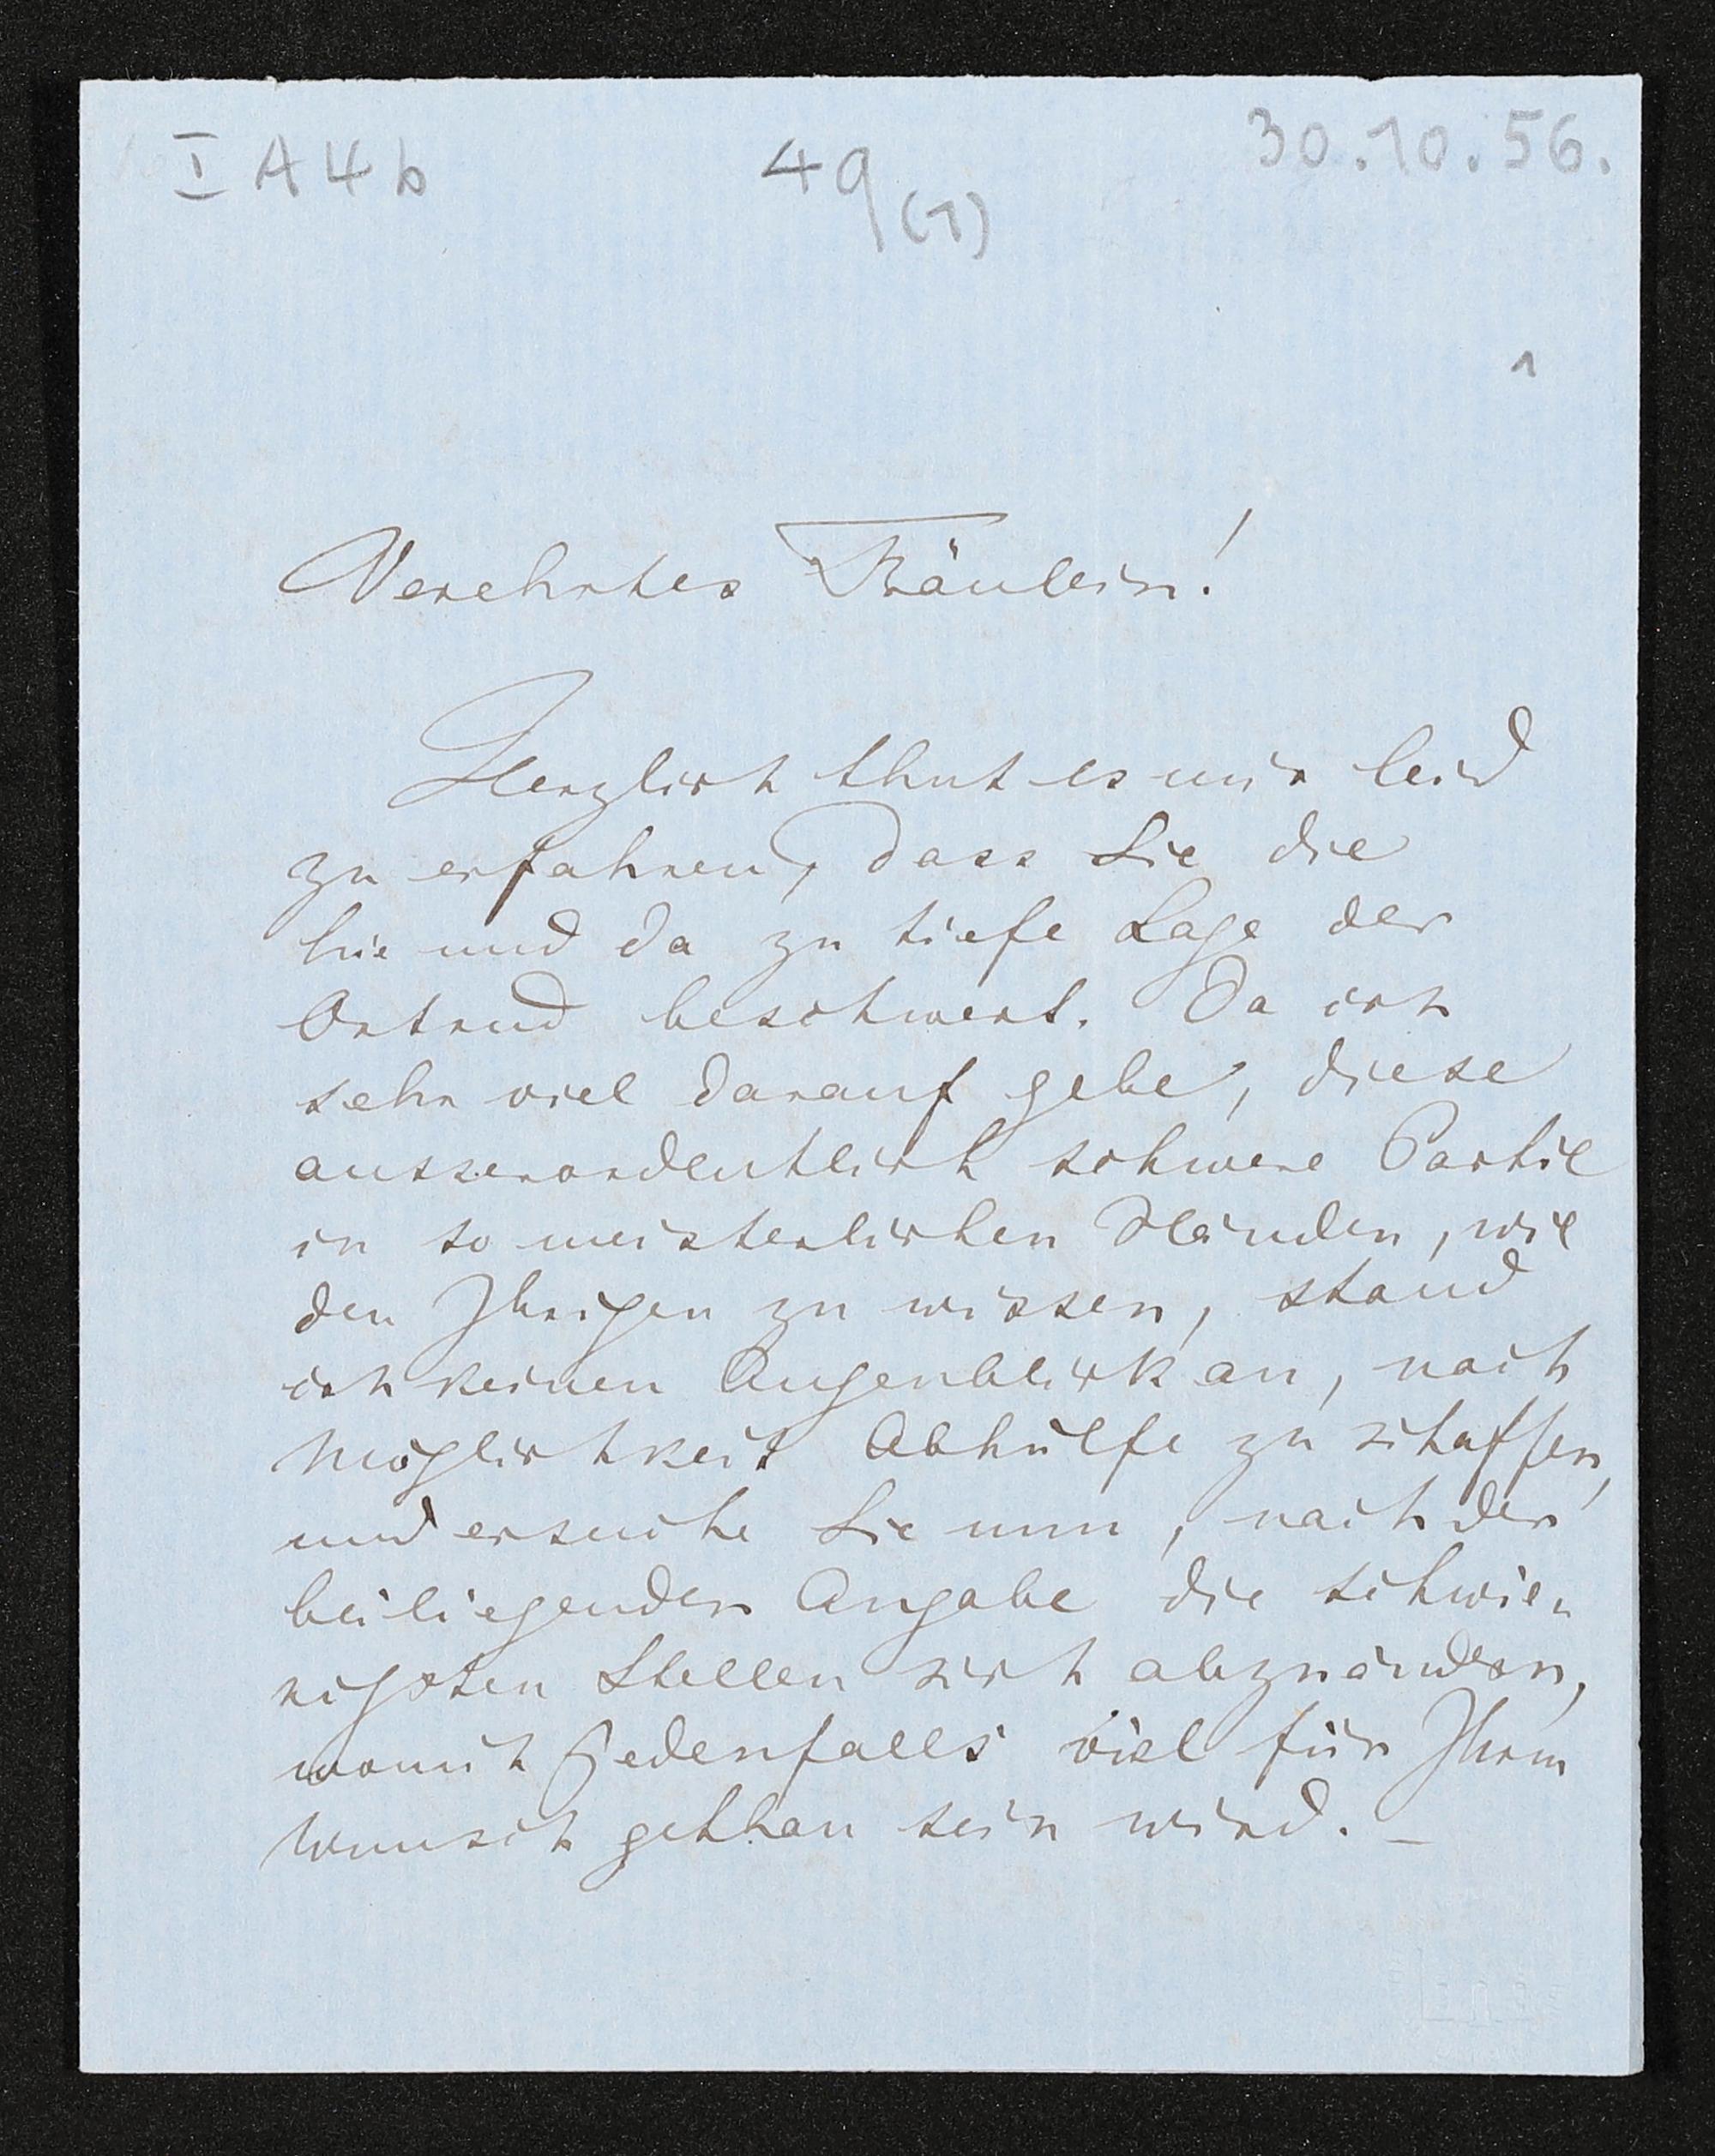 I A 4 b 49 (1) 30.10.56.
1
Verehrtes Fräulein!
Herzlich thut es mir leid
zu erfahren, dass Sie die
hie und da zu tiefe Lage der
Ortrud beschwert. Da ich
sehr viel darauf gebe, diese
ausserordentlich schwere Partie
in so meisterlichen Händen, wie
den Ihrigen zu wissen, stand
ich keinen Augenblick an, nach
Möglichkeit Abhülfe zu schaffen,
und ersuche Sie nun, nach der
beiliegenden Angabe die schwie-
rigsten Stellen sich abzuändern,
womit jedenfalls viel für Ihren
Wunsch gethan sein wird. –